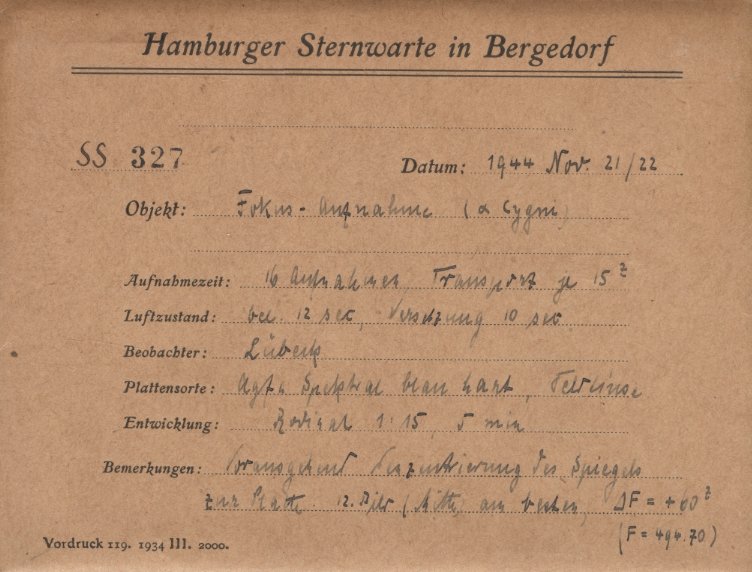 Hamburger Sternwarte in Bergedorf
SS 327
Datum: 1944 Nov. 21/22
Objekt: Fokus-Aufnahme (α Cygni)
Aufnahmezeit: 16 Aufnahmen, Transport je 15ᶻ
Luftzustand: bel. 12 sec, Versetzung 10 sec
Beobachter: Lübeck
Plattensorte: Agfa Spektral blau hart, Feldlinse
Entwicklung: Rodinal 1:15, 5 min
Bemerkungen: Vorausgehend Neuzentrierung des Spiegels
zur Platte 12. Bild (Mitte) am besten, ΔF = +60ᶻ
(F = 494.70)
Vordruck 119. 1934 III. 2000.